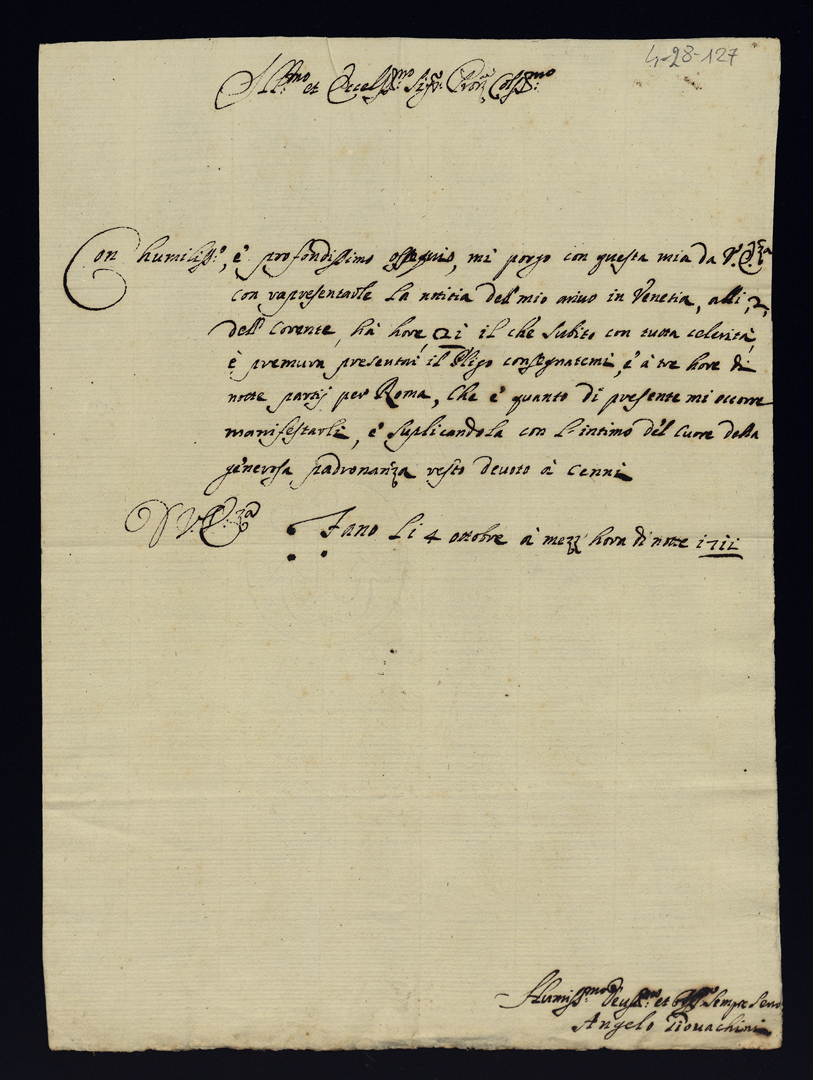 4-28-127
Ill:mo et Eccel:mo Sig:r Pron Col:mo
Con humiliss:o, è profondissimo osequio, mi porgo con questa mia da V. Ecz:a
con rapresentarle la notitia del mio ariuo in Venetia, alli, 2,
dell Corente, hà hore, 21, il che subito con tutta celerità,
è premura presentai il Pligo consegnatemi, è à tre hore di
notte partij per Roma, Che è quanto di presente mi occorre
manifestarli, è suplicandola con l'intimo del Cuore della
generosa padronanza resto deuoto à Cenni
D V. E:za
Fano li 4 ottobre à mezz hora di notte 1711
Humiss:mo Deuot:mo et Obl:mo Sempre Seruo
Angelo